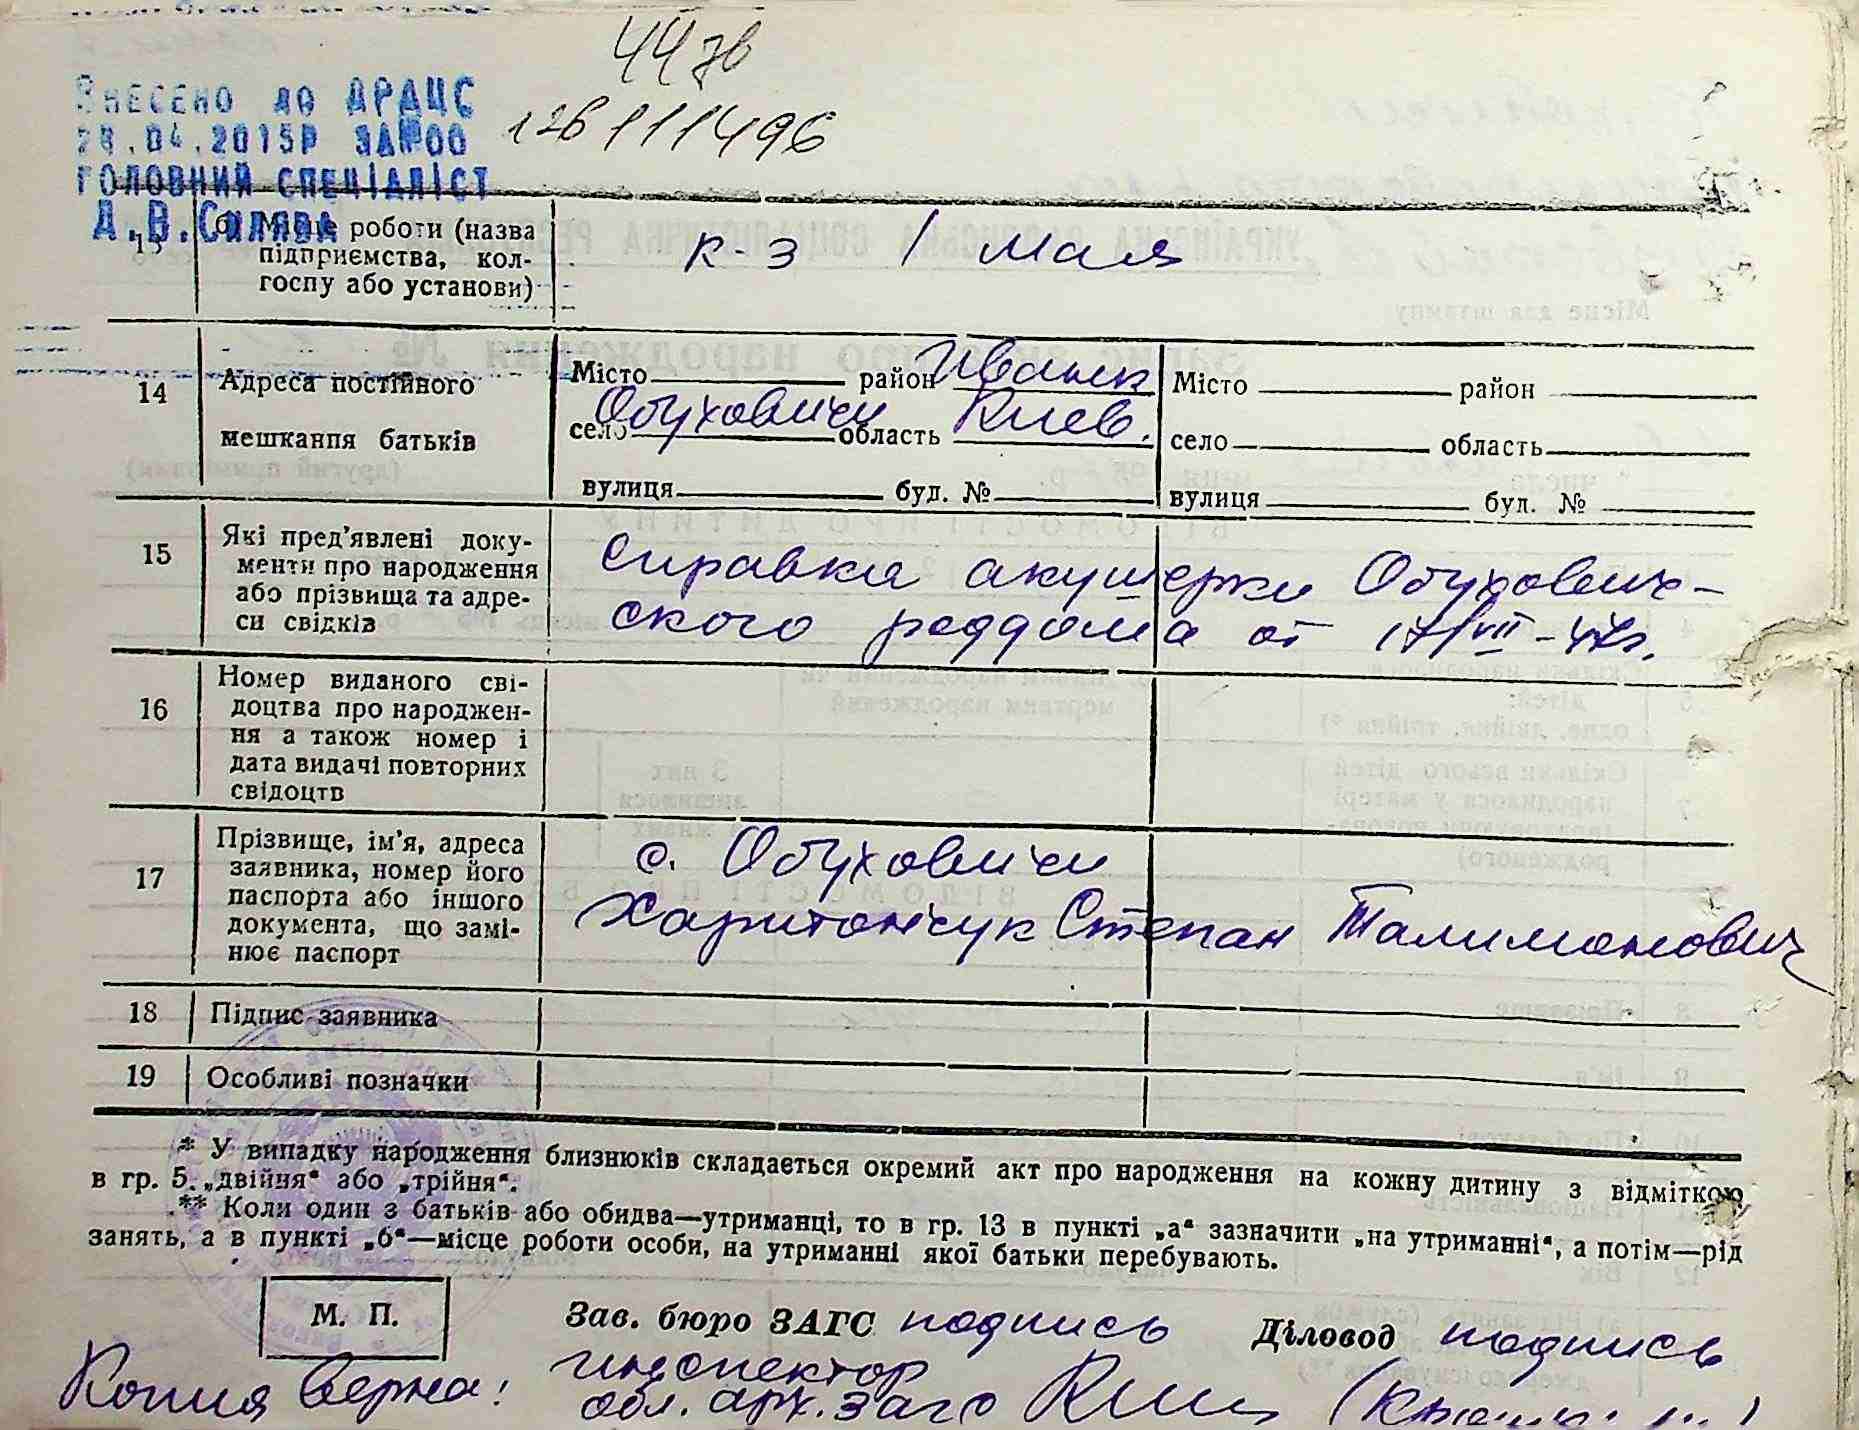 447в
126111496
ВНЕСЕНО ДО ДРАЦС
.04.2015Р ЗА №00
ГОЛОВНИЙ СПЕЦІАЛІСТ
В.Силява
13 б) Місце роботи (назва
підприємства, кол-
госпу або установи)
к-з 1 мая
14 Адреса постійного
мешкання батьків
Місто район Иванк
село Обуховичи область Киев.
вулиця буд. №
Місто район
село область
вулиця буд. №
15 Які пред'явлені доку-
менти про народження
або прізвища та адре-
си свідків
Справка акушерки Обухович-
ского роддома от 17/VII-47г.
16 Номер виданого сві-
доцтва про народжен-
ня а також номер і
дата видачі повторних
свідоцтв
17 Прізвище, ім'я, адреса
заявника, номер його
паспорта або іншого
документа, що замі-
нює паспорт
с. Обуховичи
Харитончук Степан Талимонович
18 Підпис заявника
19 Особливі позначки
* У випадку народження близнюків складається окремий акт про народження на кожну дитину з відміткою
в гр. 5. „двійня“ або „трійня“.
** Коли один з батьків або обидва—утриманці, то в гр. 13 в пункті „а“ зазначити „на утриманні“, а потім—рід
занять, а в пункті „б“—місце роботи особи, на утриманні якої батьки перебувають.
М. П.
Зав. бюро ЗАГС подпись Діловод подпись
Копия верна: инспектор
обл. арх. загс